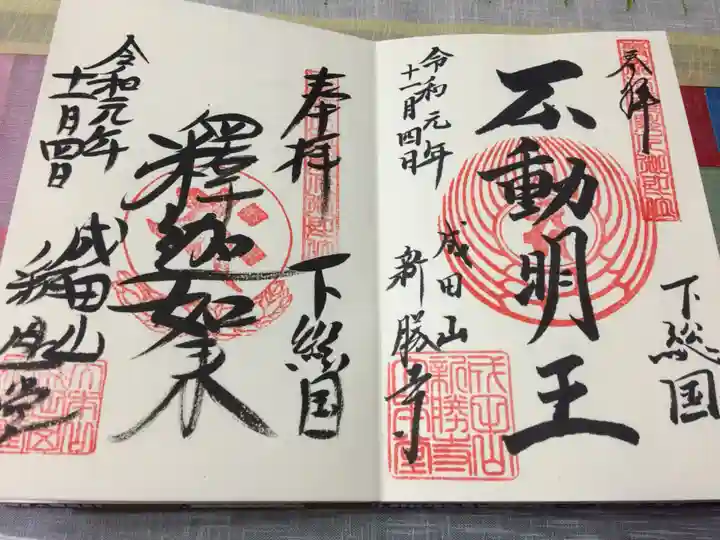 奉拝
下総国
不動明王
成田山
新勝寺
令和元年
十一月四日
奉拝
下総国
釋迦如来
成田山
釈迦堂
令和元年
十一月四日